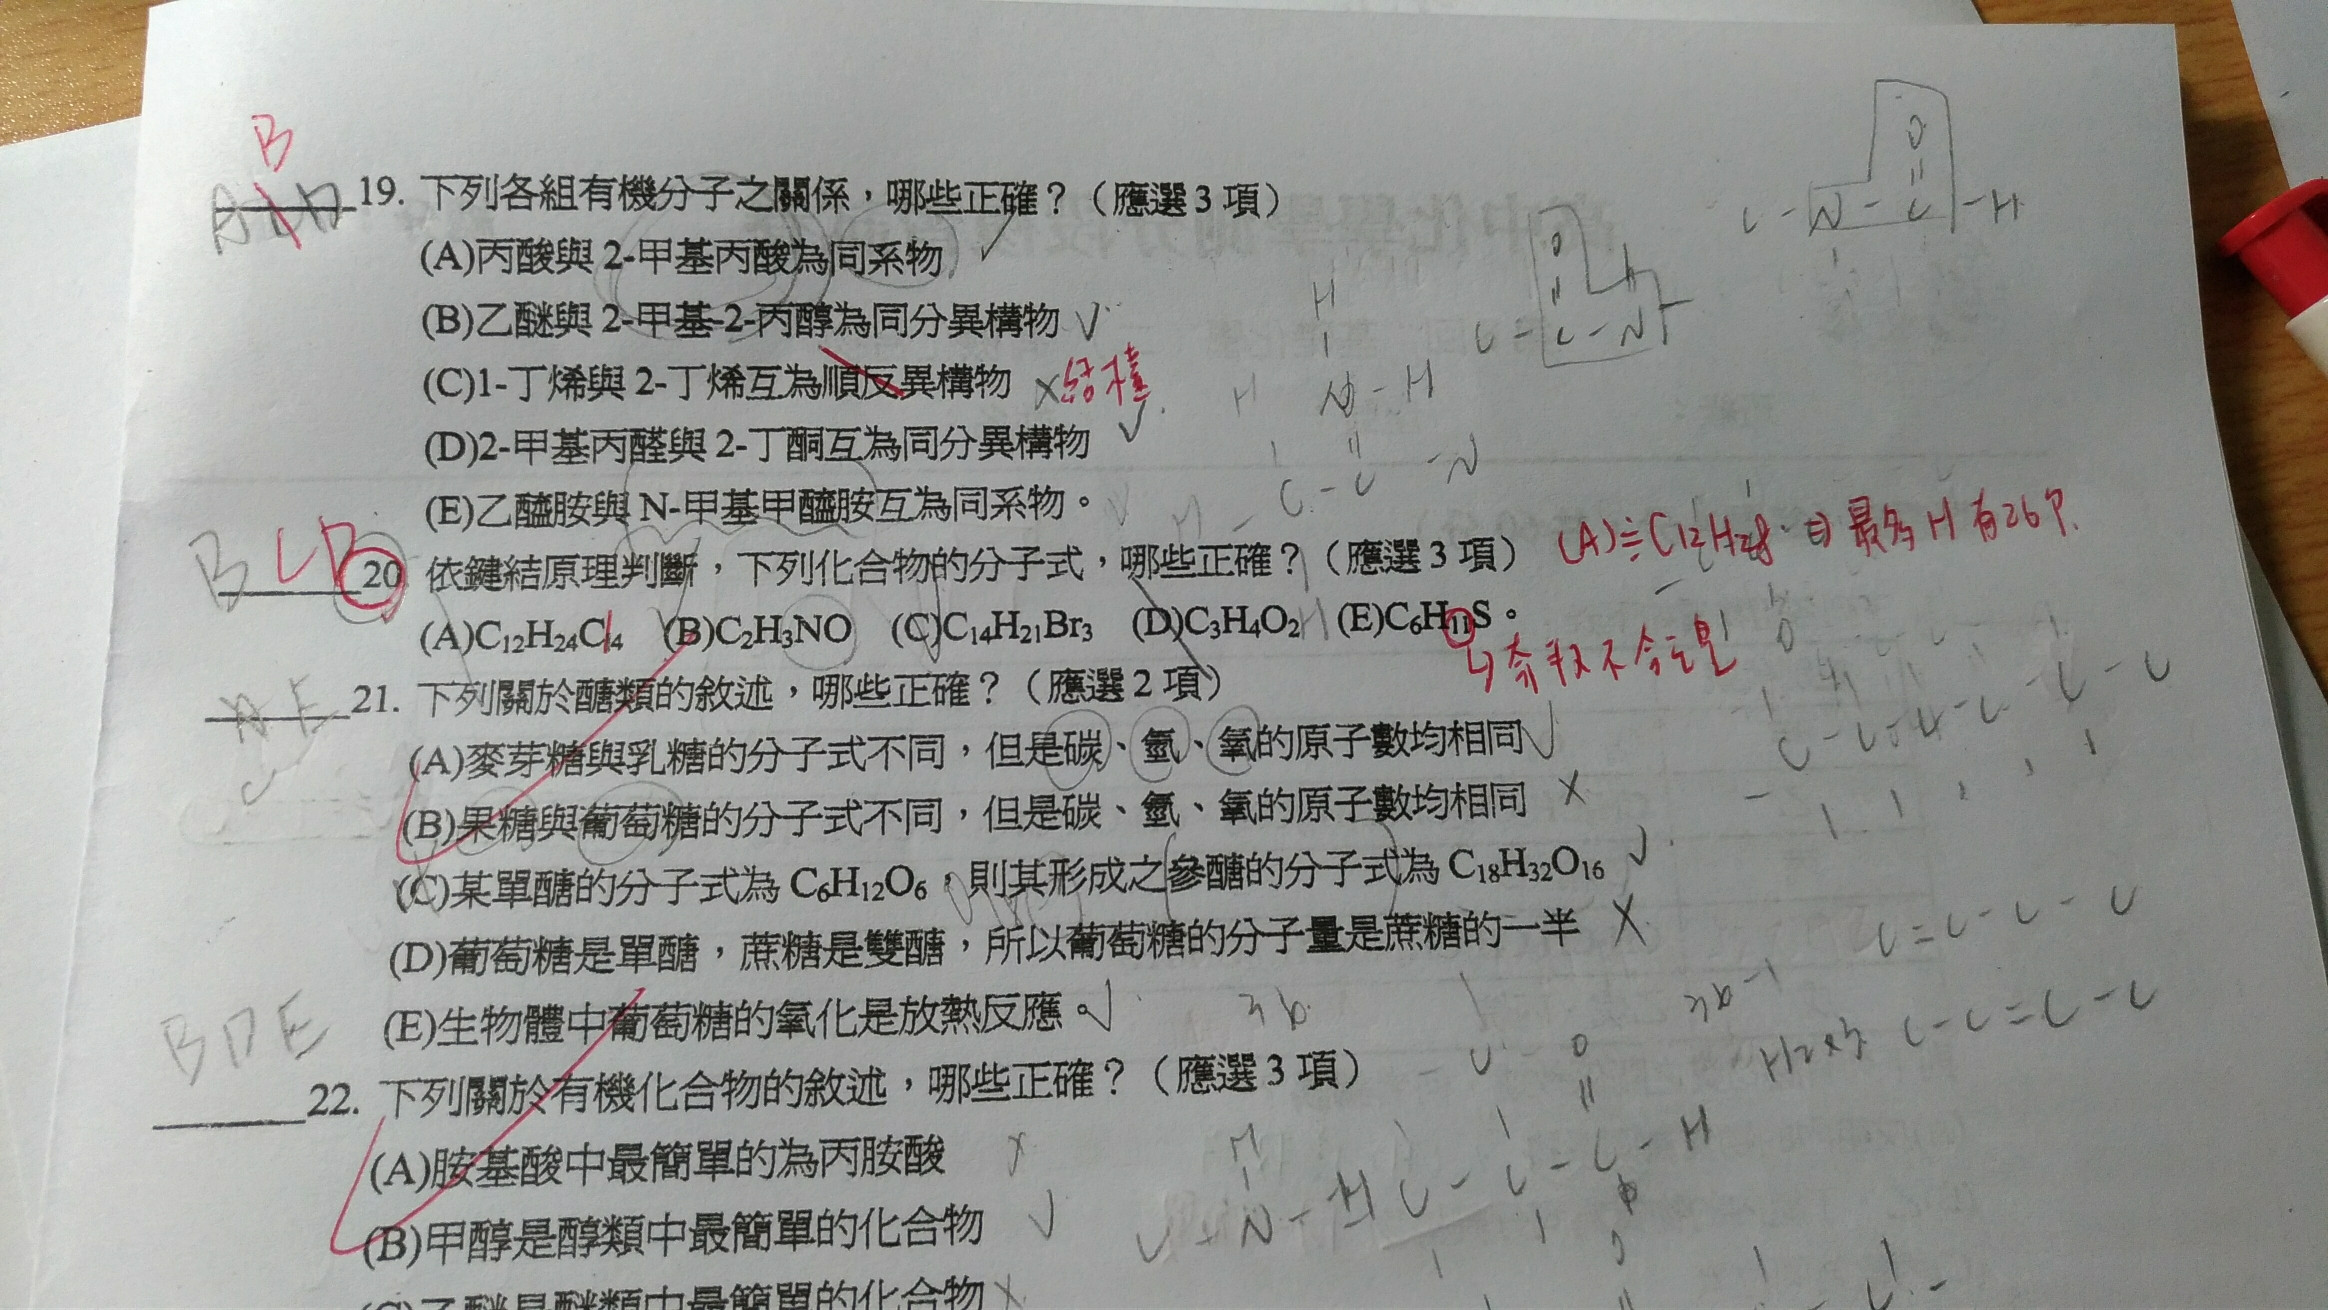 B
ABD 19. 下列各組有機分子之關係，哪些正確？（應選3項）
(A)丙酸與2-甲基丙酸為同系物 ✓
(B)乙醚與2-甲基-2-丙醇為同分異構物 ✓
(C)1-丁烯與2-丁烯互為順反異構物 ×結構
(D)2-甲基丙醛與2-丁酮互為同分異構物 ✓
(E)乙醯胺與N-甲基甲醯胺互為同系物。
BCD 20 依鍵結原理判斷，下列化合物的分子式，哪些正確？（應選3項） (A)≡C12H28 ∴最多H有26個.
(A)C₁₂H₂₄Cl₄ (B)C₂H₃NO (C)C₁₄H₂₁Br₃ (D)C₃H₄O₂ (E)C₆H₁₁S。
↳奇數不合
AE 21. 下列關於醣類的敘述，哪些正確？（應選2項）
(A)麥芽糖與乳糖的分子式不同，但是碳、氫、氧的原子數均相同✓
(B)果糖與葡萄糖的分子式不同，但是碳、氫、氧的原子數均相同 ×
(C)某單醣的分子式為C₆H₁₂O₆，則其形成之參醣的分子式為C₁₈H₃₂O₁₆ ✓
(D)葡萄糖是單醣，蔗糖是雙醣，所以葡萄糖的分子量是蔗糖的一半 ×
(E)生物體中葡萄糖的氧化是放熱反應。✓
BDE
22. 下列關於有機化合物的敘述，哪些正確？（應選3項）
(A)胺基酸中最簡單的為丙胺酸 ×
(B)甲醇是醇類中最簡單的化合物 ✓
(C)乙醚是醚類中最簡單的化合物 ×